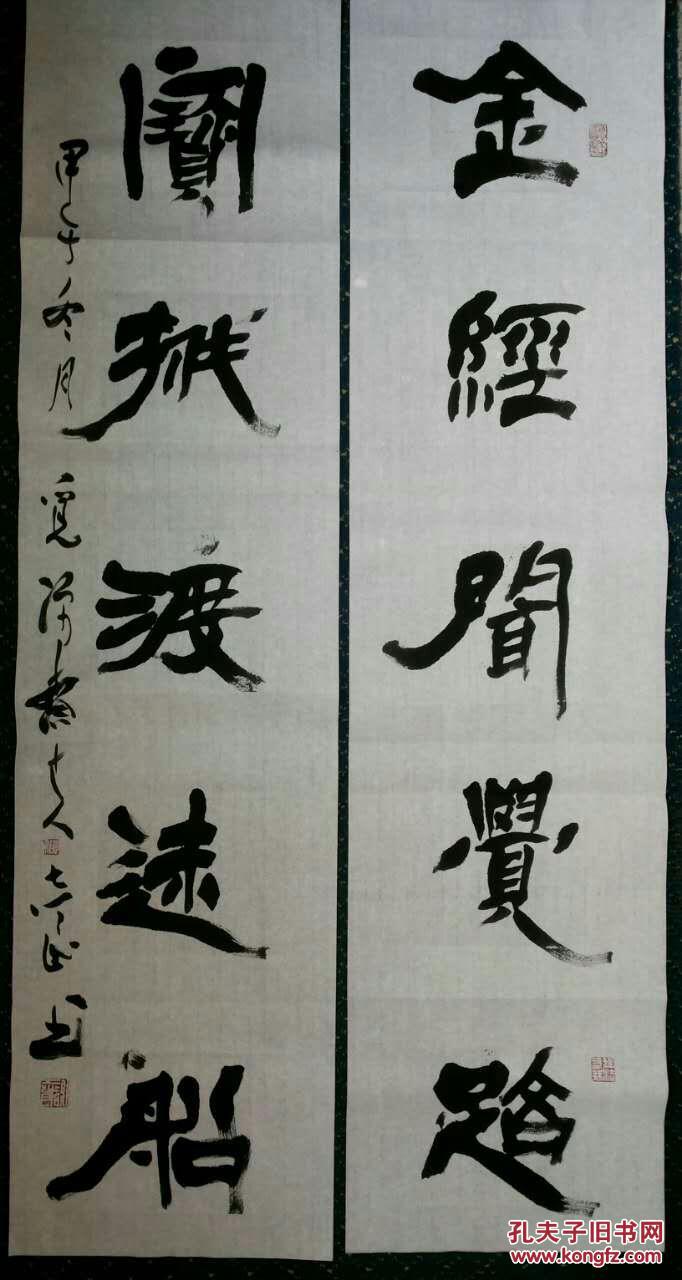 金經聞覺路
寶栰渡迷船
甲午冬月 主人 书
孔夫子旧书网
www.kongfz.com